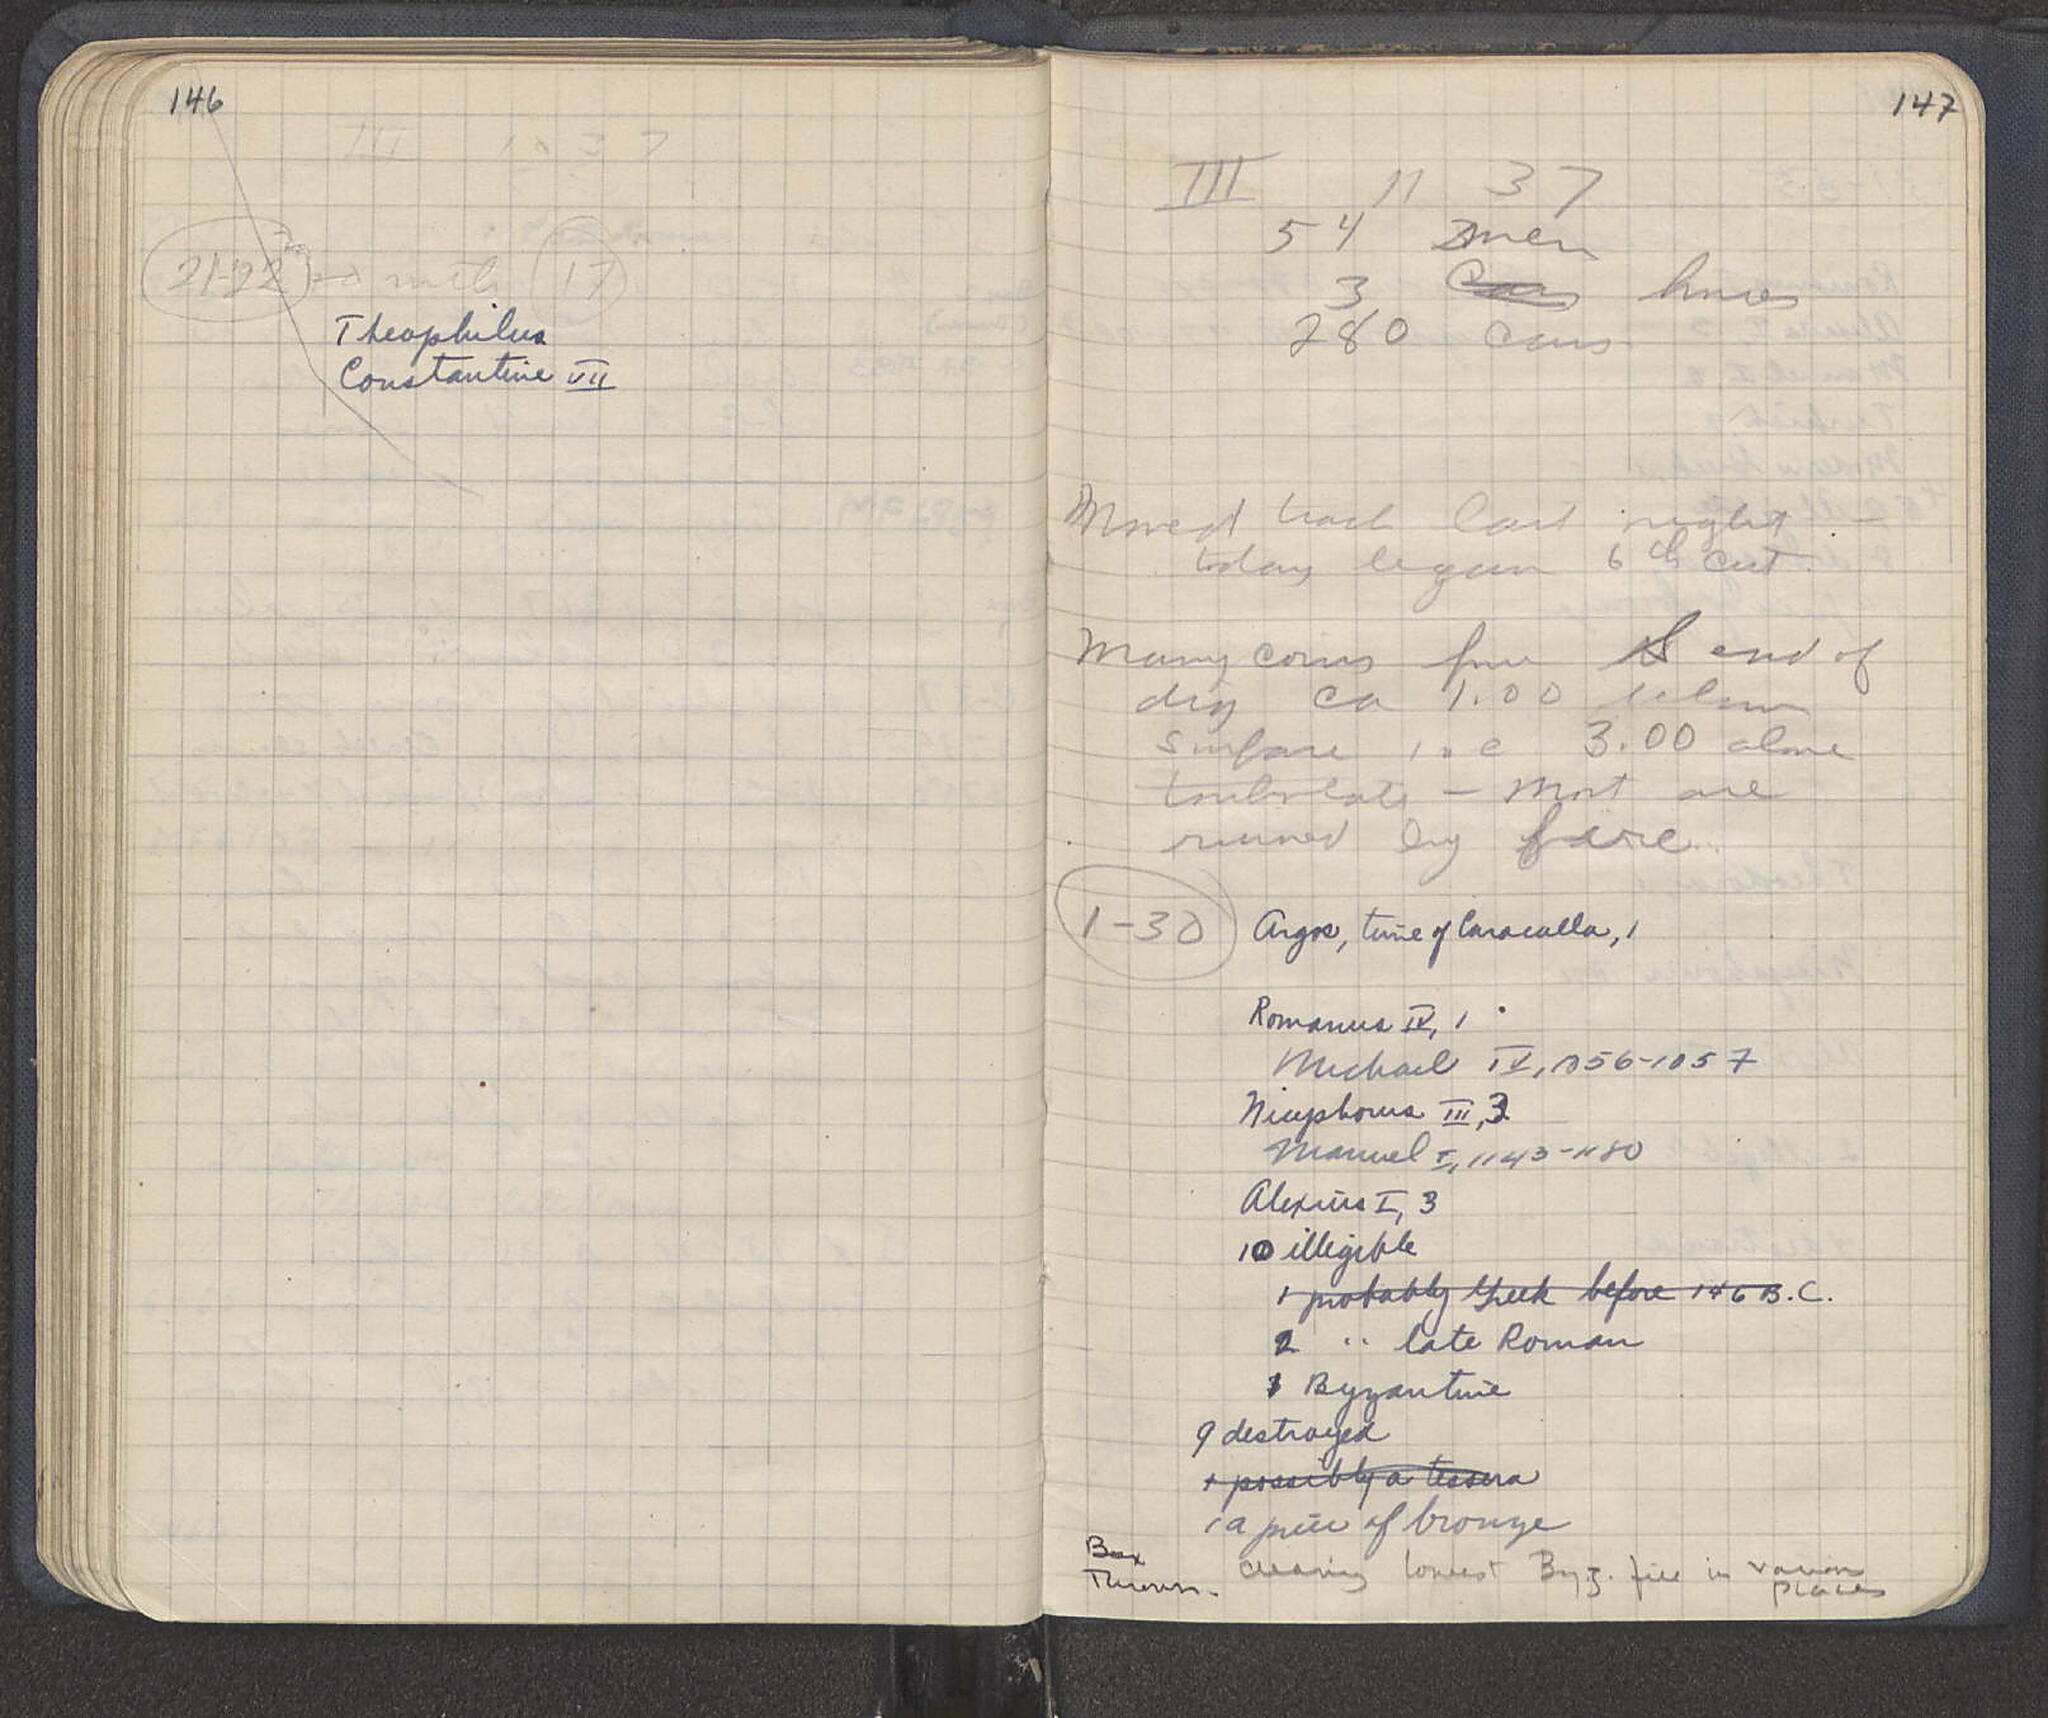 146
21-22 → with 17
Theophilus
Constantine VII
147
III 11 37
54 men
3 Cars horses
280 cars
Moved track last night –
today began 6th cut.
Many coins from S end of
dig ca 1.00 below
surface i.e 3.00 above
– Most are
ruined by fire.
1-30 Argos, time of Caracalla, 1
Romanus IV, 1
Michael IV, 1056-1057
Nicephorus III, 3
Manuel I, 1143-1180
Alexius I, 3
10 illegible
1 probably Greek before 146 B.C.
2 " late Roman
1 Byzantine
9 destroyed
1 possibly a tessera
1 a piece of bronze
Box
Thrown. cleaning lowest Byz. fill in various
places